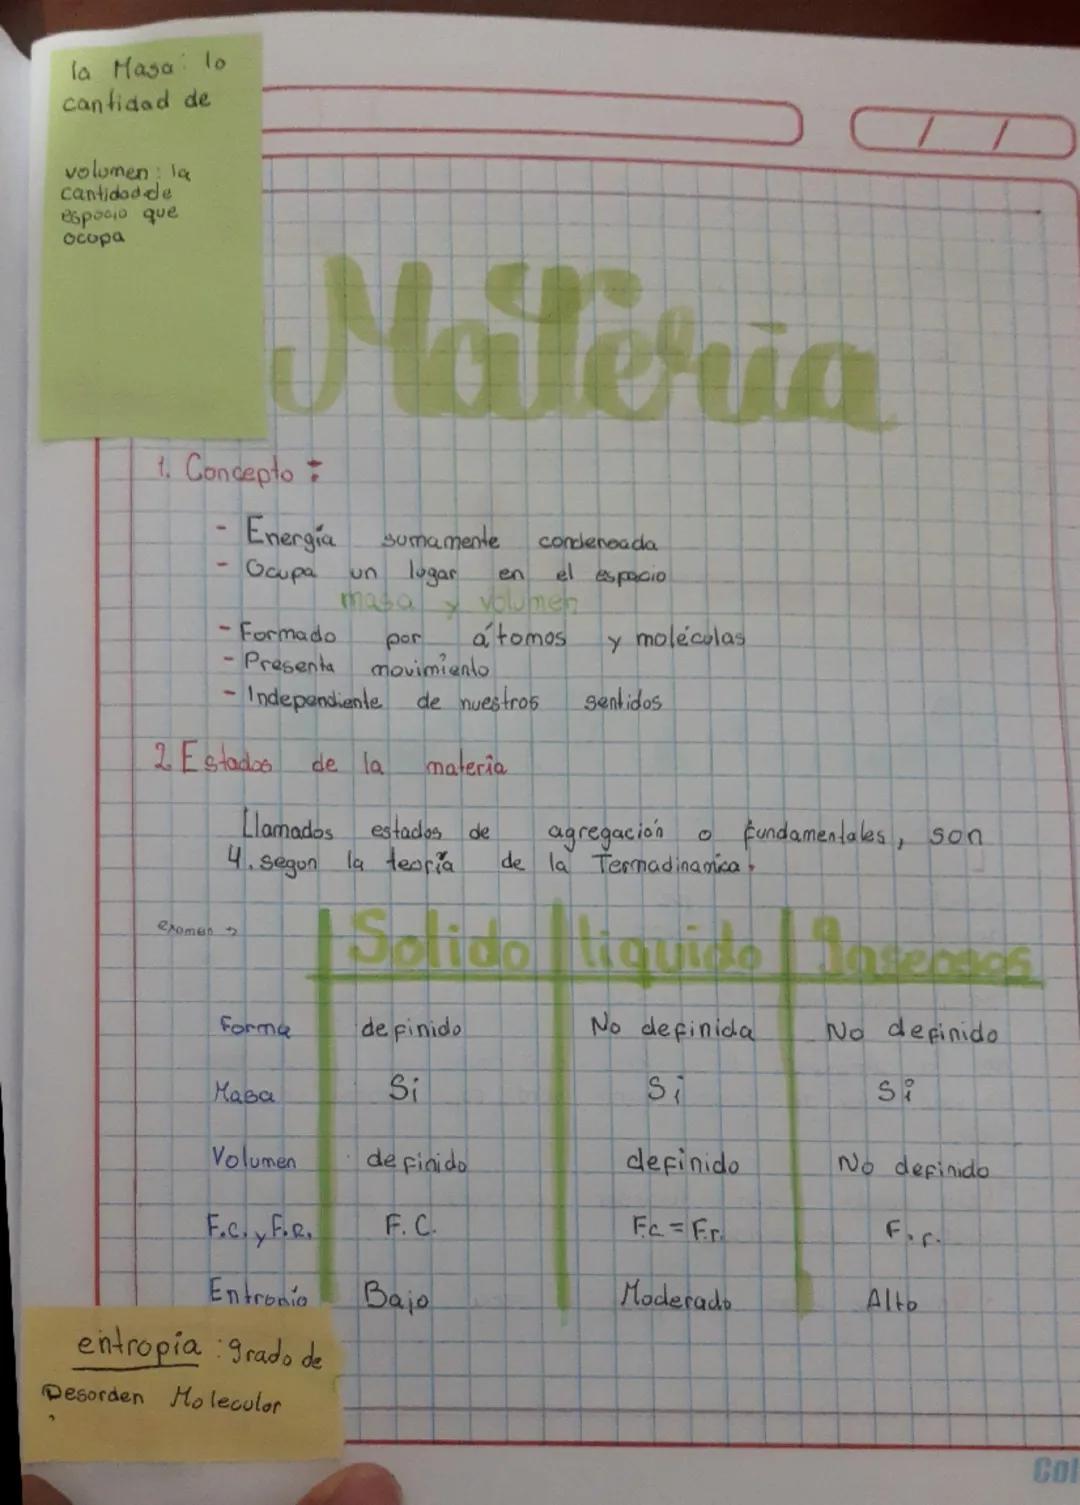 la Masa: lo
cantidad de
volumen: la
cantidad de
espacio que
ocupa
/ /
Materia
1. Concepto:
- Energía sumamente condensada
- Ocupa un lugar en el espacio
masa y volumen
- Formado por átomos y moléculas
- Presenta movimiento
- Independiente de nuestros sentidos
2. Estados de la materia
Llamados estados de agregación o fundamentales, son
4. segun la teoría de la Termadinamica.
examen → Solido liquido gaseosos
Forma definido No definida No definido
Masa Si Si Si
Volumen definido definido No definido
F.C. y F.R. F.C. F.c = F.r. F.r.
Entropía Bajo Moderado Alto
entropía: grado de
Desorden Molecular
Col